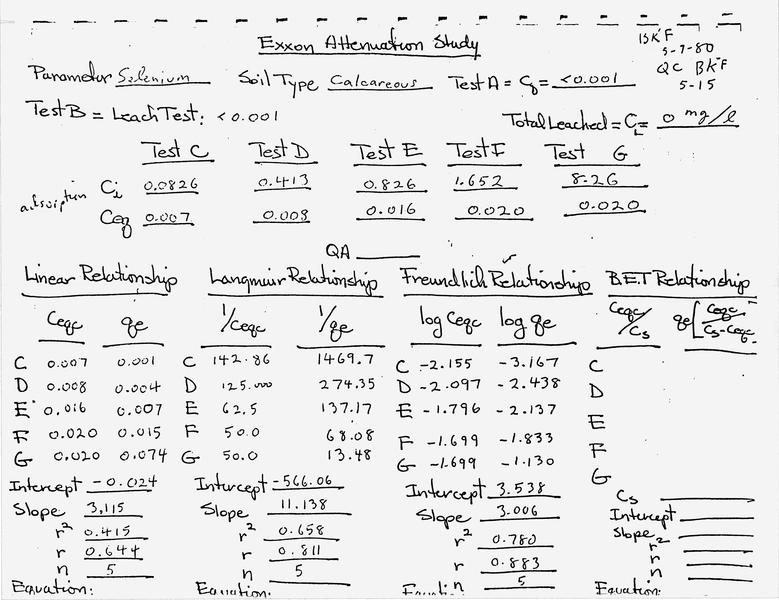 Exxon Attenuation Study
BKF
5-7-80
QC BKF
5-15
Parameter Selenium Soil Type Calcareous Test A = C₀ = <0.001
Test B = Leach Test: <0.001 Total Leached = C_L = 0 mg/l
Test C Test D Test E Test F Test G
adsorption Ci 0.0826 0.413 0.826 1.652 8.26
Ceq 0.007 0.008 0.016 0.020 0.020
QA
Linear Relationship Langmuir Relationship Freundlich Relationship B.E.T Relationship
Ceqc qe 1/Ceqc 1/qe log Ceqc log qe Ceqc/Cs qe[Ceqc/Cs-Ceqc
C 0.007 0.001 C 142.86 1469.7 C -2.155 -3.167 C
D 0.008 0.004 D 125.000 274.35 D -2.097 -2.438 D
E 0.016 0.007 E 62.5 137.17 E -1.796 -2.137 E
F 0.020 0.015 F 50.0 68.08 F -1.699 -1.833 F
G 0.020 0.074 G 50.0 13.48 G -1.699 -1.130 G
Intercept -0.024 Intercept -566.06 Intercept 3.538 Cs
Slope 3.115 Slope 11.138 Slope 3.006 Intercept
r² 0.415 r² 0.658 r² 0.780 Slope
r 0.644 r 0.811 r 0.883 r²
n 5 n 5 n 5 r
n
Equation: Equation: Equation: